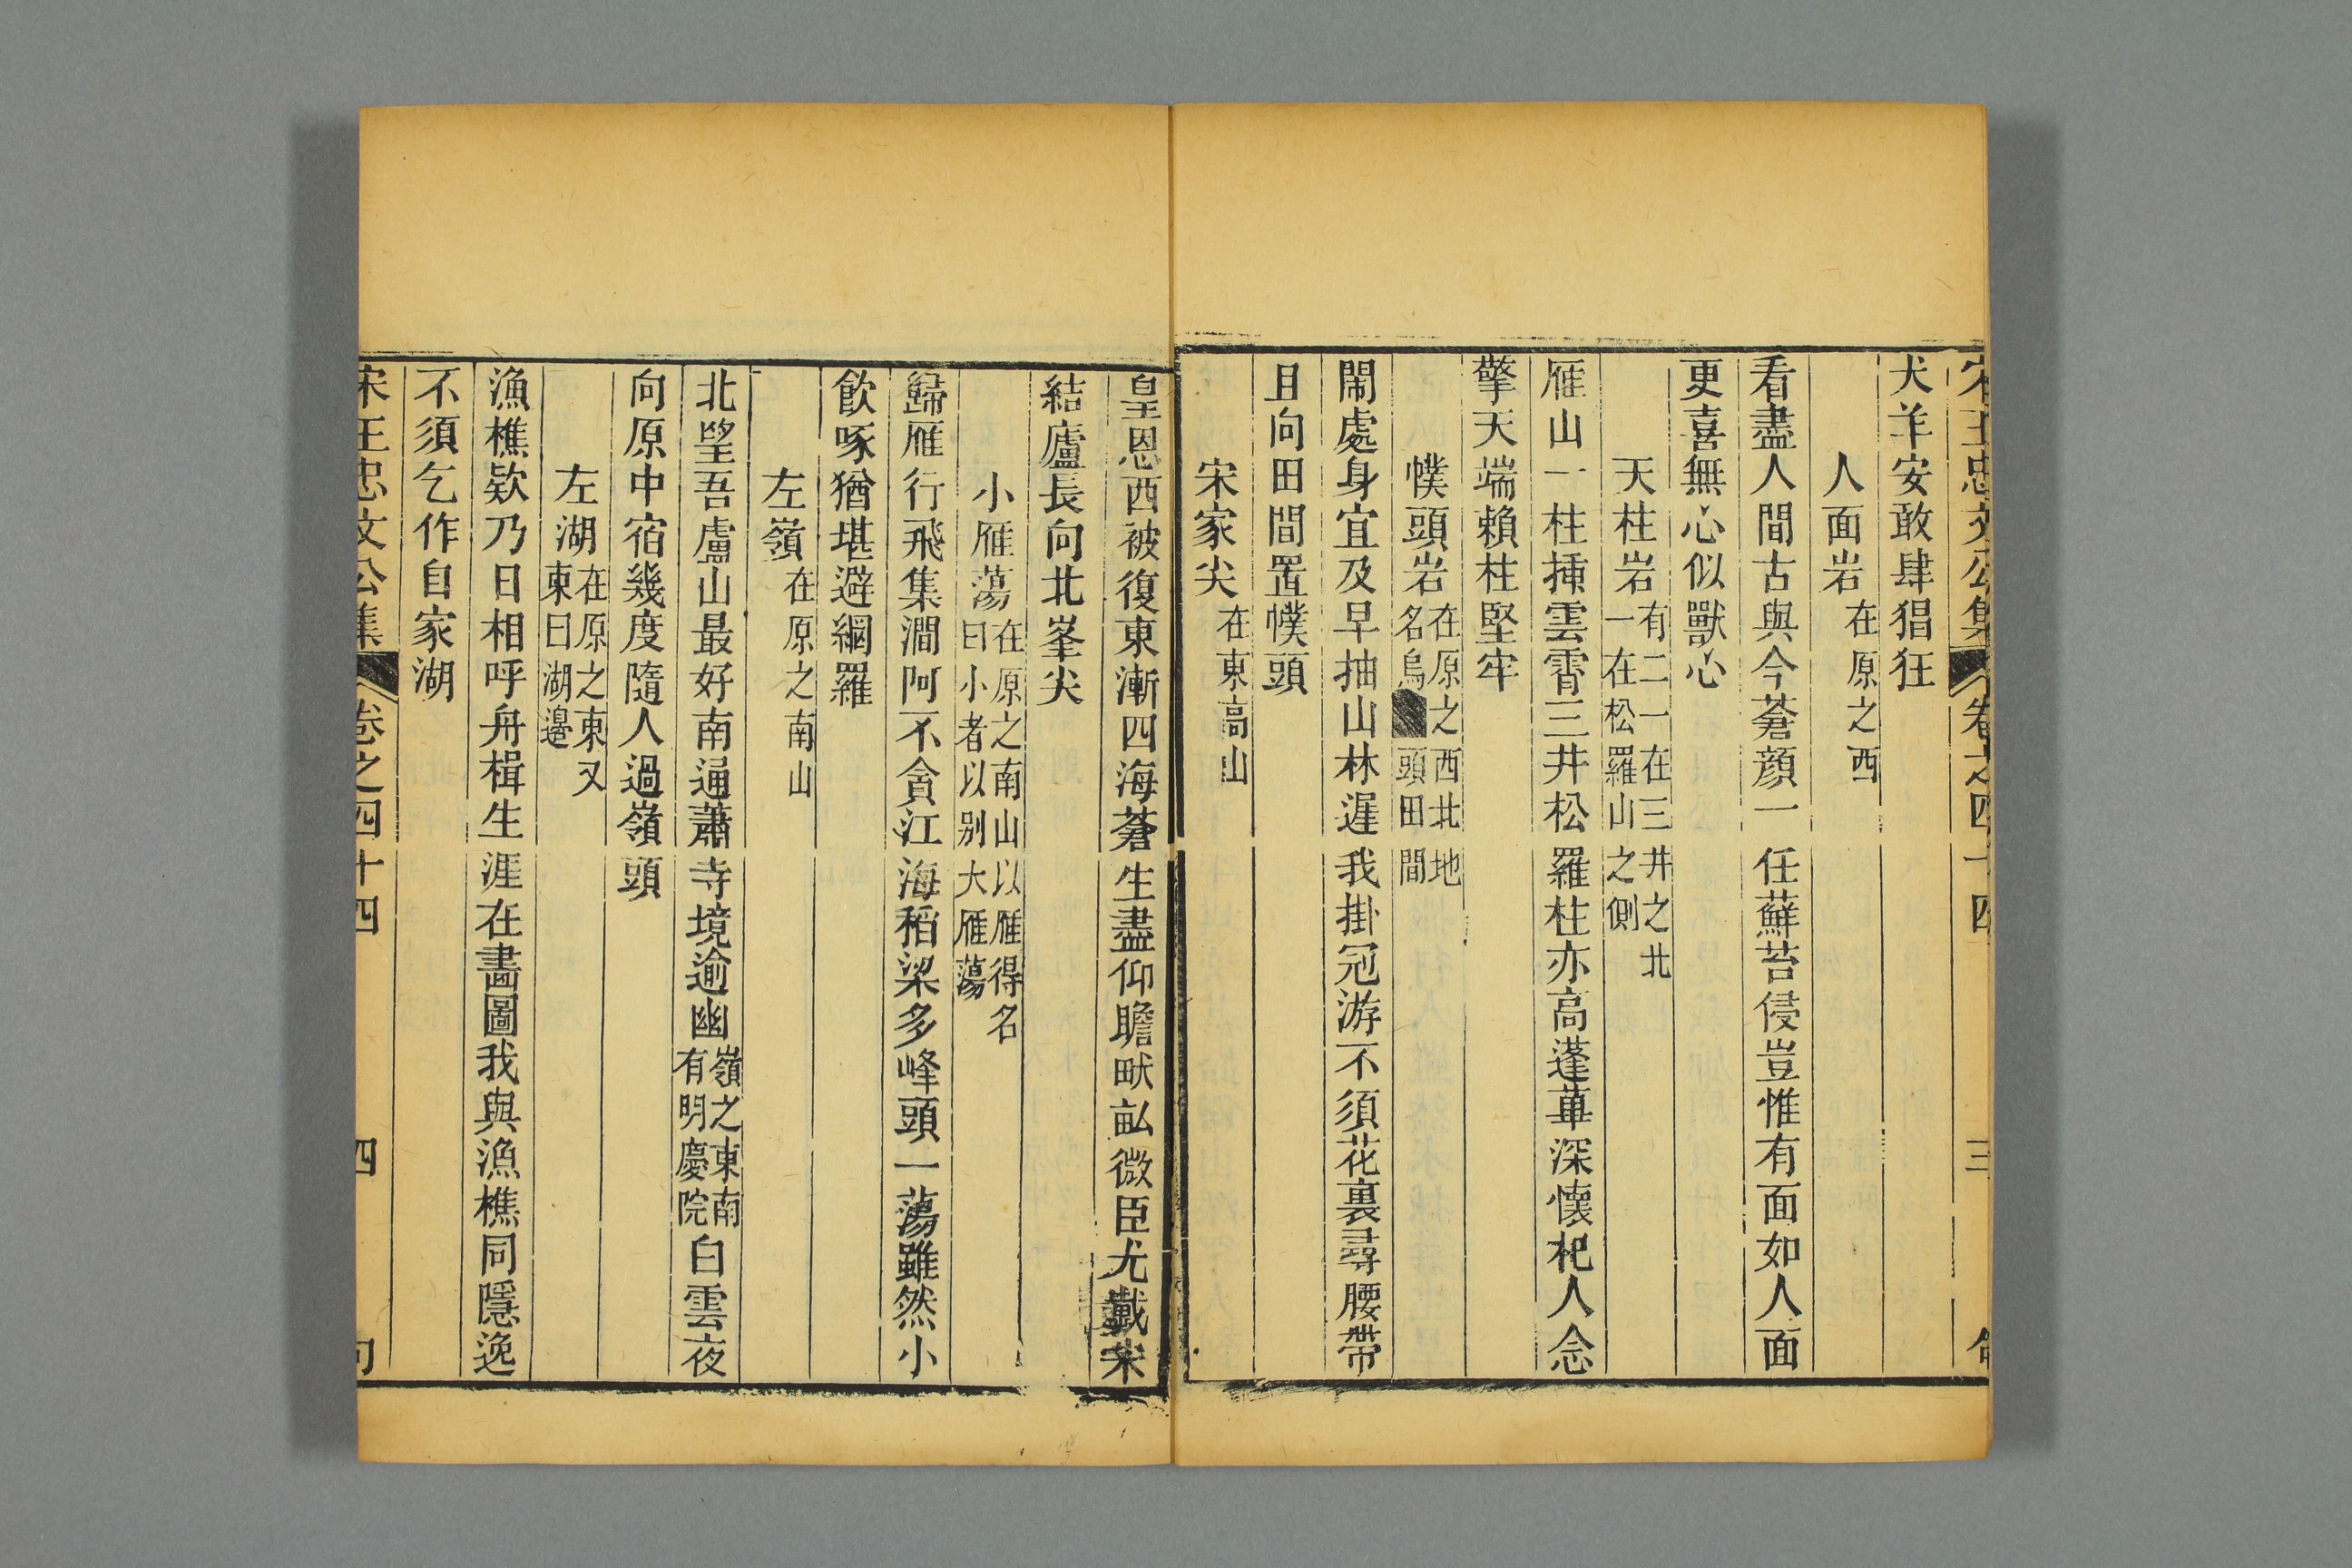 宋王忠文公集 卷之四十四 三
犬羊安敢肆猖狂
人面岩在原之西
看盡人間古與今蒼顔一任蘚苔侵豈惟有面如人面
更喜無心似獸心
天柱岩有二一在三井之北一在松羅山之側
雁山一柱揷雲霄三井松羅柱亦高蓬蓽深懐杞人念
擎天端賴柱堅牢
幞頭岩在原之西北地名烏頭田間
閙處身宜及早抽山林遲我掛冠游不須花裏尋腰帶
且向田間置幞頭
宋家尖在東高山
皇恩西被復東漸四海蒼生盡仰瞻畎畝微臣尤戴宋
結廬長向北峯尖
小雁蕩在原之南山以雁得名曰小者以别大雁蕩
歸雁行飛集澗阿不貪江海稻梁多峰頭一蕩雖然小
飲啄猶堪避網羅
左嶺在原之南山
北望吾廬山最好南通蕭寺境逾幽嶺之東南有明慶院白雲夜
向原中宿幾度隨人過嶺頭
左湖在原之東又東曰湖邊
漁樵欵乃日相呼舟楫生涯在畵圖我與漁樵同隱逸
不須乞作自家湖
宋王忠文公集 卷之四十四 四